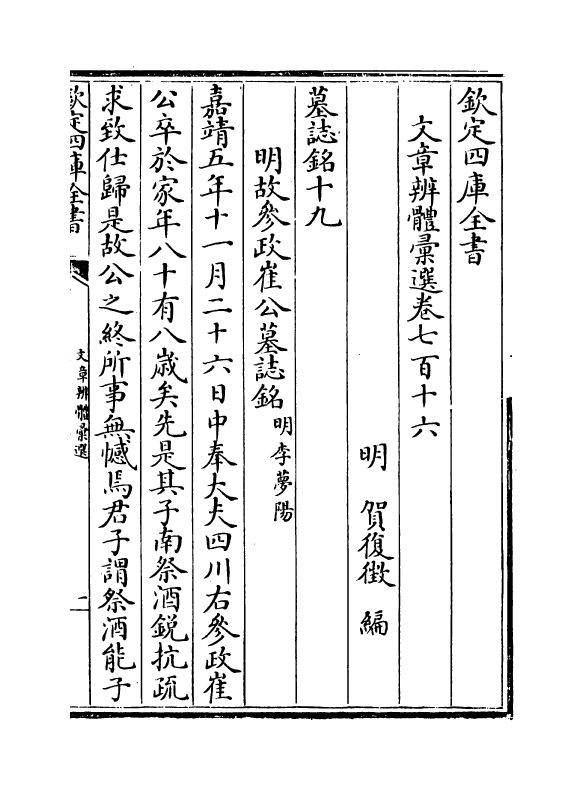 欽定四庫全書
文章辨體彙選卷七百十六
明 賀復徵 編
墓誌銘十九
明故參政崔公墓誌銘 明李夢陽
嘉靖五年十一月二十六日中奉大夫四川右參政崔
公卒於家年八十有八歲矣先是其子南祭酒鋭抗疏
求致仕歸是故公之終所事無憾焉君子謂祭酒能子
欽定四庫全書
文章辨體彙選
二